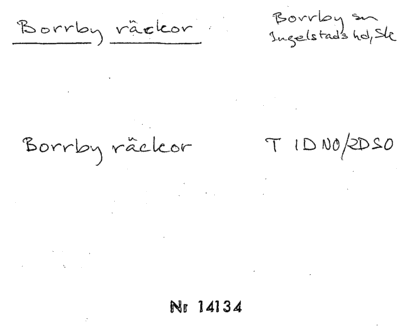 Borrby räckor
Borrby sn
Ingelstads hd, Sk
Borrby räckor
T 1D NO/2D SO
Nr 14134